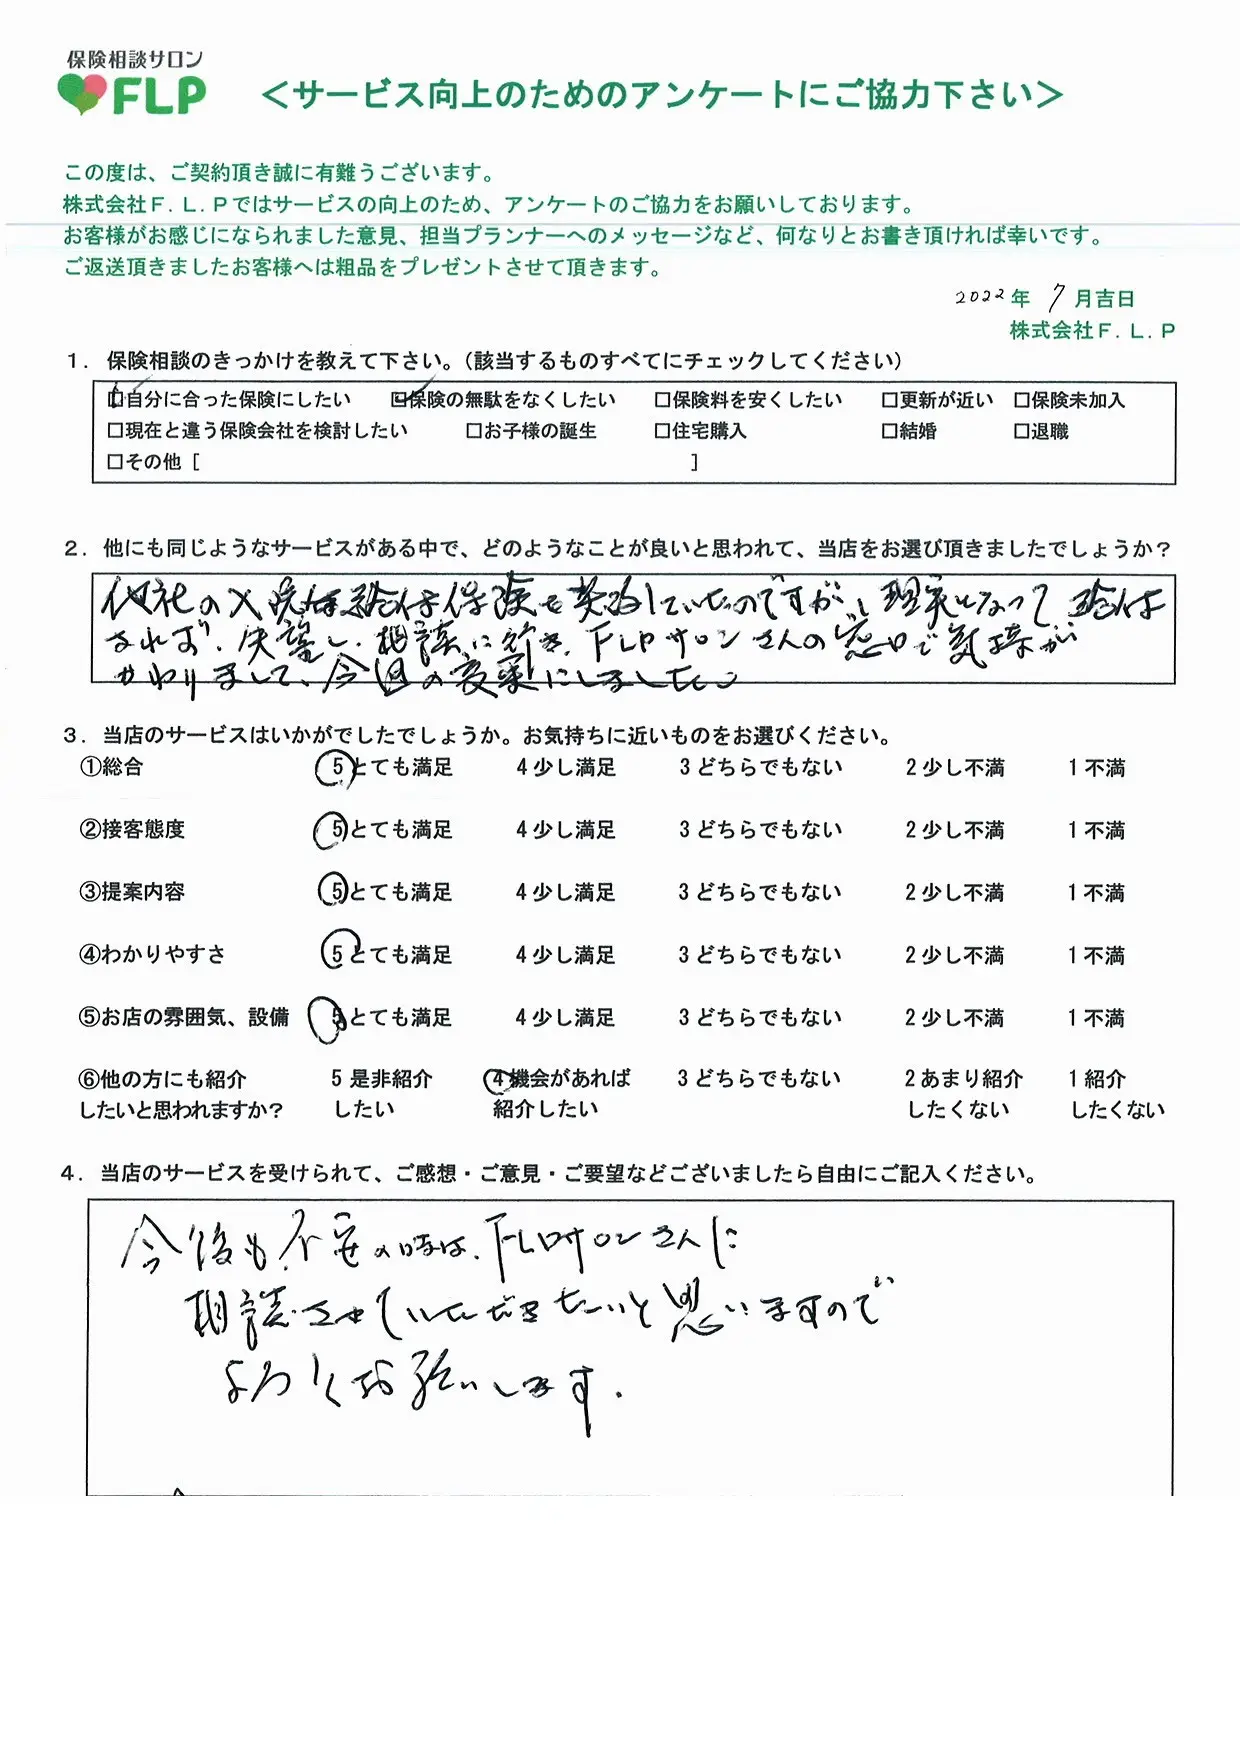 保険相談サロン
FLP
＜サービス向上のためのアンケートにご協力下さい＞
この度は、ご契約頂き誠に有難うございます。
株式会社Ｆ．Ｌ．Ｐではサービスの向上のため、アンケートのご協力をお願いしております。
お客様がお感じになられました意見、担当プランナーへのメッセージなど、何なりとお書き頂ければ幸いです。
ご返送頂きましたお客様へは粗品をプレゼントさせて頂きます。
2022年 7月吉日
株式会社Ｆ．Ｌ．Ｐ
１．保険相談のきっかけを教えて下さい。（該当するものすべてにチェックしてください）
☑自分に合った保険にしたい ☑保険の無駄をなくしたい □保険料を安くしたい □更新が近い □保険未加入
□現在と違う保険会社を検討したい □お子様の誕生 □住宅購入 □結婚 □退職
□その他［ ］
２．他にも同じようなサービスがある中で、どのようなことが良いと思われて、当店をお選び頂きましたでしょうか？
他社の入院給付保険をしていたのですが、になって給付
されず、失望し、相談に行き、FLPサロンさんの窓口で気持が
かわりまして、今回の変更にしました。
３．当店のサービスはいかがでしたでしょうか。お気持ちに近いものをお選びください。
①総合 5とても満足 4少し満足 3どちらでもない 2少し不満 1不満
②接客態度 5とても満足 4少し満足 3どちらでもない 2少し不満 1不満
③提案内容 5とても満足 4少し満足 3どちらでもない 2少し不満 1不満
④わかりやすさ 5とても満足 4少し満足 3どちらでもない 2少し不満 1不満
⑤お店の雰囲気、設備 5とても満足 4少し満足 3どちらでもない 2少し不満 1不満
⑥他の方にも紹介 5是非紹介 4機会があれば 3どちらでもない 2あまり紹介 1紹介
したいと思われますか？ したい 紹介したい したくない したくない
４．当店のサービスを受けられて、ご感想・ご意見・ご要望などございましたら自由にご記入ください。
今後も不安の時は、FLPサロンさんに
相談させていただきたいと思いますので
よろしくお願いします。